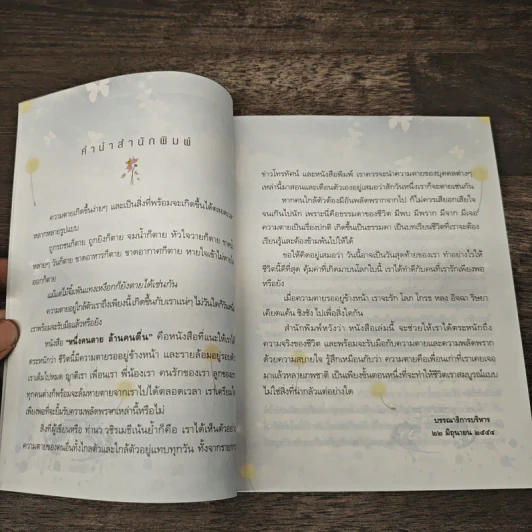 คำนำสำนักพิมพ์
ความตายเกิดขึ้นง่ายๆ และเป็นสิ่งที่พร้อมจะเกิดขึ้นได้ตลอดเวลา
หลากหลายรูปแบบ
ถูกรถชนก็ตาย ถูกยิงก็ตาย จมน้ำก็ตาย หัวใจวายก็ตาย
หลายๆ วันก็ตาย ขาดอาหารก็ตาย ขาดอากาศก็ตาย หายใจเข้าไม่
ออกก็ตาย
แม้แต่ไม้จิ้มฟันแทงเหงือกก็ยังตายได้เช่นกัน
ความตายอยู่ใกล้ตัวเราถึงเพียงนี้ เกิดขึ้นกับเราแน่ๆ ไม่วันใดก็วัน
เราพร้อมจะรับมือแล้วหรือยัง
หนังสือ "หนึ่งคนตาย ล้านคนตื่น" คือหนังสือที่แนะให้เรา
ตระหนักว่า ชีวิตนี้มีความตายรออยู่ข้างหน้า และรายล้อมอยู่รอบตัว
เราเต็มไปหมด ญาติเรา เพื่อนเรา พี่น้องเรา คนรักของเรา ลูกของเรา
ทุกคนต่างก็พร้อมจะล้มหายตายจากเราไปได้ตลอดเวลา เราได้เตรียม
เพียงพอที่จะยิ้มรับความพลัดพรากเหล่านี้หรือไม่
สิ่งที่ผู้เขียนหรือ ท่านว.วชิรเมธีเน้นย้ำก็คือ เราได้เห็นตัวอย่าง
ความตายของคนอื่นทั้งไกลตัวและใกล้ตัวอยู่แทบทุกวัน ทั้งจากรายการ
ข่าวโทรทัศน์ และหนังสือพิมพ์ เราควรจะนำความตายของบุคคลต่างๆ
เหล่านี้มาสอนและเตือนตัวเองอยู่เสมอว่าสักวันหนึ่งเราก็จะตายเช่นกัน
หากคนใกล้ตัวต้องมีอันพลัดพรากจากไป ก็ไม่ควรเสียอกเสียใจ
จนเกินไปนัก เพราะนี่คือธรรมดาของชีวิต มีพบ มีพราก มีจาก มีเจอ
ความตายเป็นเรื่องปกติ เกิดขึ้นเป็นธรรมดา เป็นบทเรียนชีวิตที่เราจะต้อง
เรียนรู้และต้องข้ามพ้นไปให้ได้
ขอให้คิดอยู่เสมอว่า วันนี้อาจเป็นวันสุดท้ายของเรา ทำอย่างไรให้
ชีวิตนี้ดีที่สุด คุ้มค่าที่เกิดมาบนโลกใบนี้ เราได้ทำดีกับคนที่เรารักเพียงพอ
หรือยัง
เมื่อความตายรออยู่ข้างหน้า เราจะรัก โลภ โกรธ หลง อิจฉา ริษยา
เคียดแค้น ชิงชัง ไปเพื่อสิ่งใดกัน
สำนักพิมพ์หวังว่า หนังสือเล่มนี้ จะช่วยให้เราได้ตระหนักถึง
ความจริงของชีวิต และพร้อมจะรับมือกับความตายและความพลัดพราก
ด้วยความสบายใจ รู้สึกเหมือนกับว่า ความตายคือเพื่อนเก่าที่เราเคยเจอ
มาแล้วหลายภพชาติ เป็นเพียงขั้นตอนหนึ่งที่จะทำให้ชีวิตเราสมบูรณ์แบบ
ไม่ใช่สิ่งที่น่ากลัวแต่อย่างใด
บรรณาธิการบริหาร
๒๒ มิถุนายน ๒๕๕๔